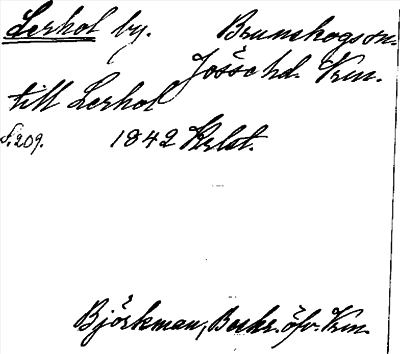 Lerhol by. Brunskogs sn.
Jösse hd. Vrm.
till Lerhol
S. 209. 1842 Krlst.
Björkman, Beskr. öfv. Vrm.